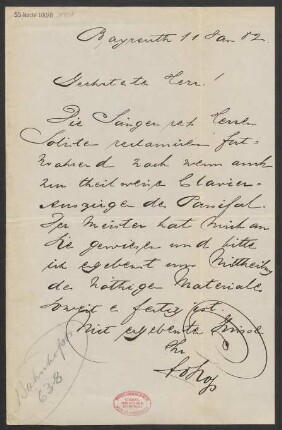 Bayreuth 11 Jan 82.
Geehrtester Herr!
Die Sänger resp Herren
Solisten reclamiren fort-
während nach wenn auch
zum theilweise Clavier-
auszügen des Parsifal
Der Meister hat mich an
Sie gewiesen und bitte
ich ergebenst um Mittheilung
des nöthigen Materials
soweit es fertig ist.
Mit ergebenstem Grusse
Ihr
638